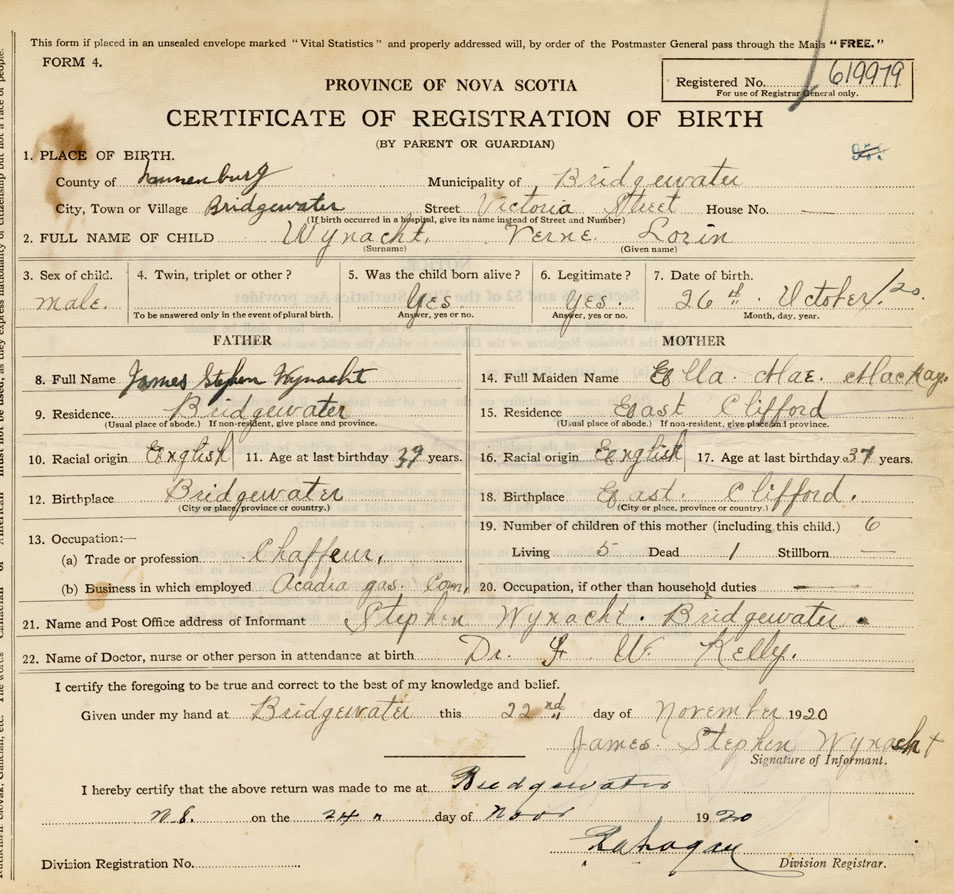 This form if placed in an unsealed envelope marked "Vital Statistics" and properly addressed will, by order of the Postmaster General pass through the Mails "FREE."
FORM 4.
Registered No. 619979
For use of Registrar General only.
PROVINCE OF NOVA SCOTIA
CERTIFICATE OF REGISTRATION OF BIRTH
(BY PARENT OR GUARDIAN)
1. PLACE OF BIRTH.
County of Lunnenburg Municipality of Bridgewater
City, Town or Village Bridgewater Street Victoria Street House No. —
(If birth occurred in a hospital, give its name instead of Street and Number)
2. FULL NAME OF CHILD Wynacht, Verne Lorin
(Surname) (Given name)
3. Sex of child. 4. Twin, triplet or other? 5. Was the child born alive? 6. Legitimate? 7. Date of birth.
male. Yes Yes. 26th. October/20.
To be answered only in the event of plural birth. Answer, yes or no. Answer, yes or no. Month, day, year.
FATHER MOTHER
8. Full Name James Stephen Wynacht 14. Full Maiden Name Ella. Mae. MacKay.
9. Residence. Bridgewater 15. Residence East Clifford
(Usual place of abode.) If non-resident, give place and province. (Usual place of abode.) If non-resident, give place and province.
10. Racial origin English 11. Age at last birthday 39 years. 16. Racial origin English 17. Age at last birthday 37 years.
12. Birthplace Bridgewater 18. Birthplace East. Clifford.
(City or place, province or country.) (City or place, province or country.)
19. Number of children of this mother (including this child.) 6
13. Occupation:—
(a) Trade or profession Chaffeur, Living 5 Dead 1 Stillborn —
(b) Business in which employed Acadia gas. Com, 20. Occupation, if other than household duties —
21. Name and Post Office address of Informant Stephen Wynacht. Bridgewater.
22. Name of Doctor, nurse or other person in attendance at birth Dr. F W. Kelly.
I certify the foregoing to be true and correct to the best of my knowledge and belief.
Given under my hand at Bridgewater this 22nd day of November 1920
James. Stephen Wynacht
Signature of Informant.
I hereby certify that the above return was made to me at Bridgewater
N.S. on the 24 " day of Novr 1920
Division Registration No. Division Registrar.